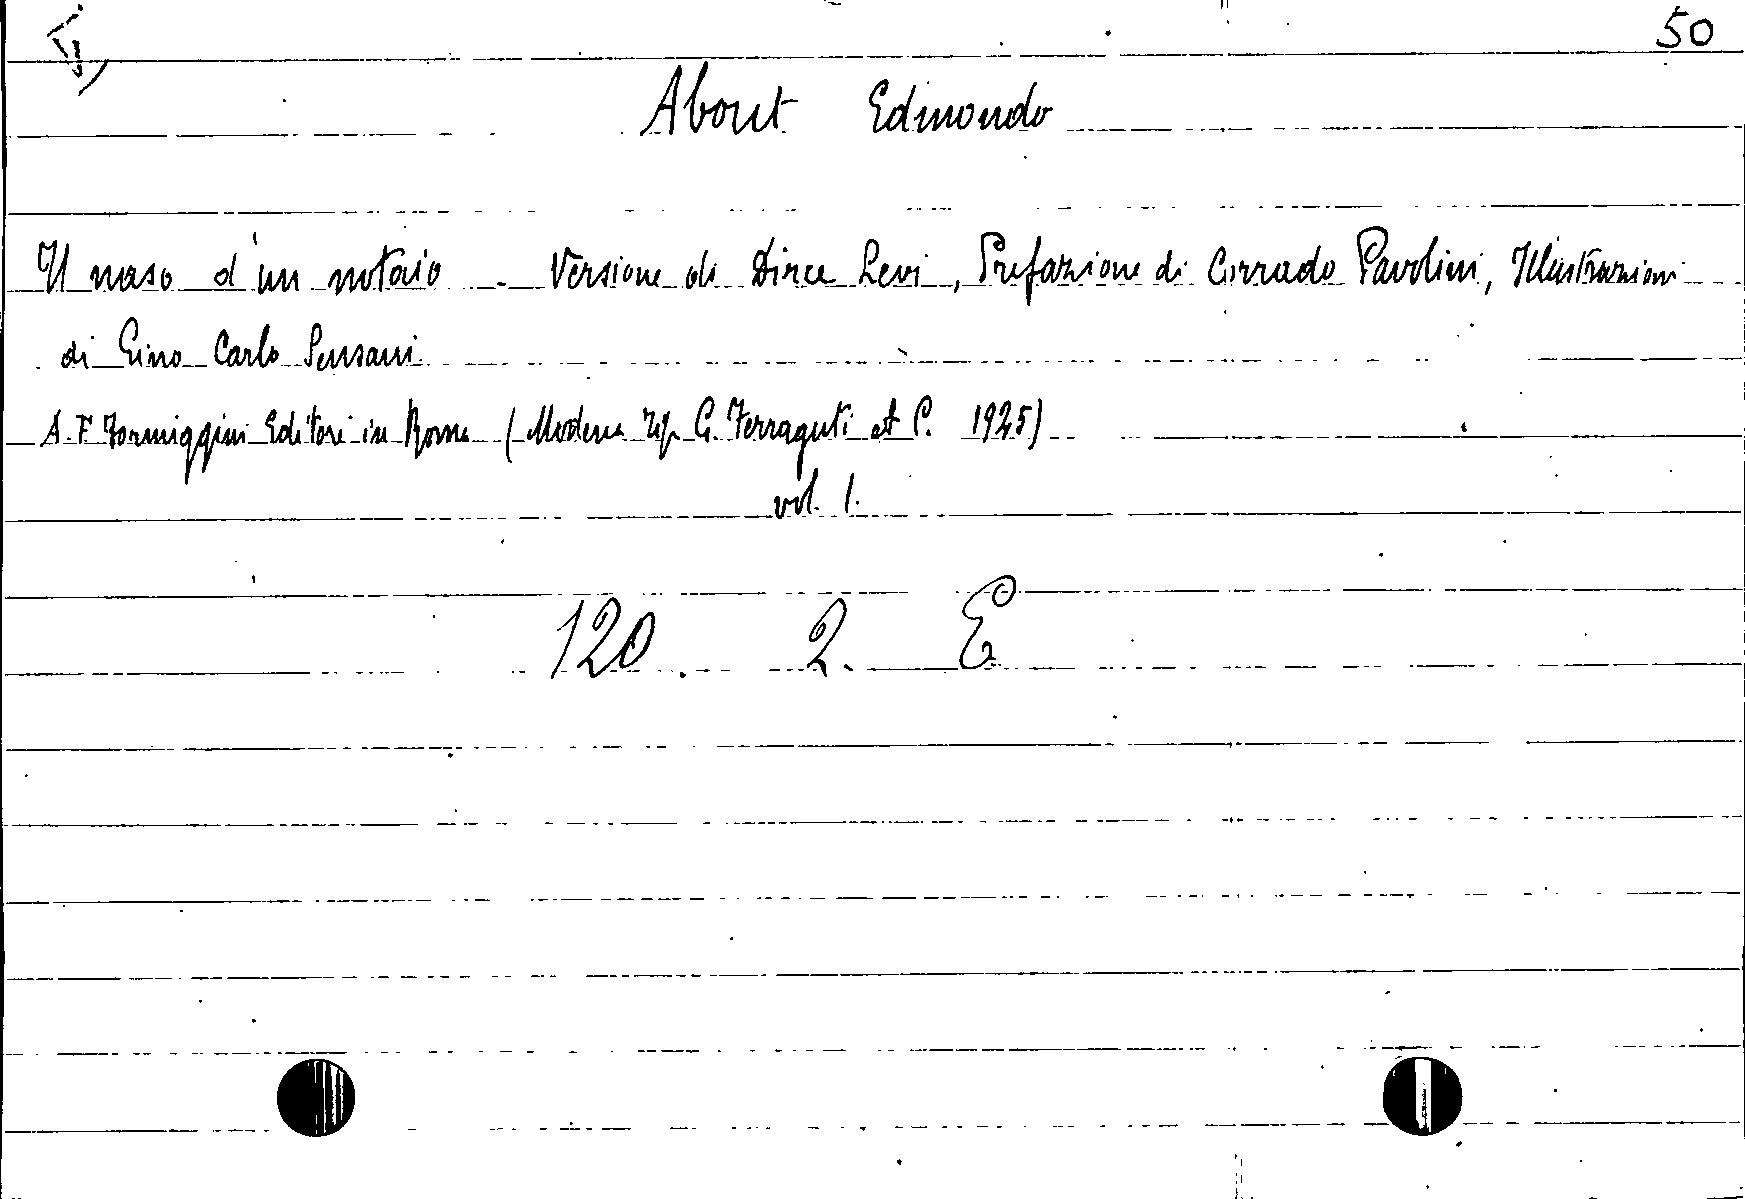 50
About Edmondo
Il naso d'un notaio - Versione di Dirce Levi, Prefazione di Corrado Pavolini, Illustrazioni
di Gino Carlo Sensani
A. F. Formiggini Editore in Roma (Modena Tip. G. Ferraguti et C. 1925)
vol. 1.
120. 2. E